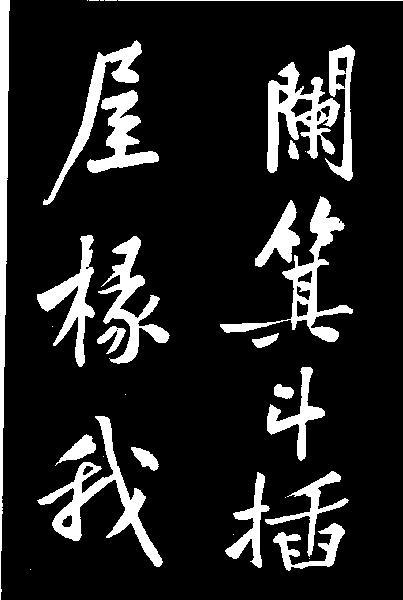 闌箕斗插
屋椽我